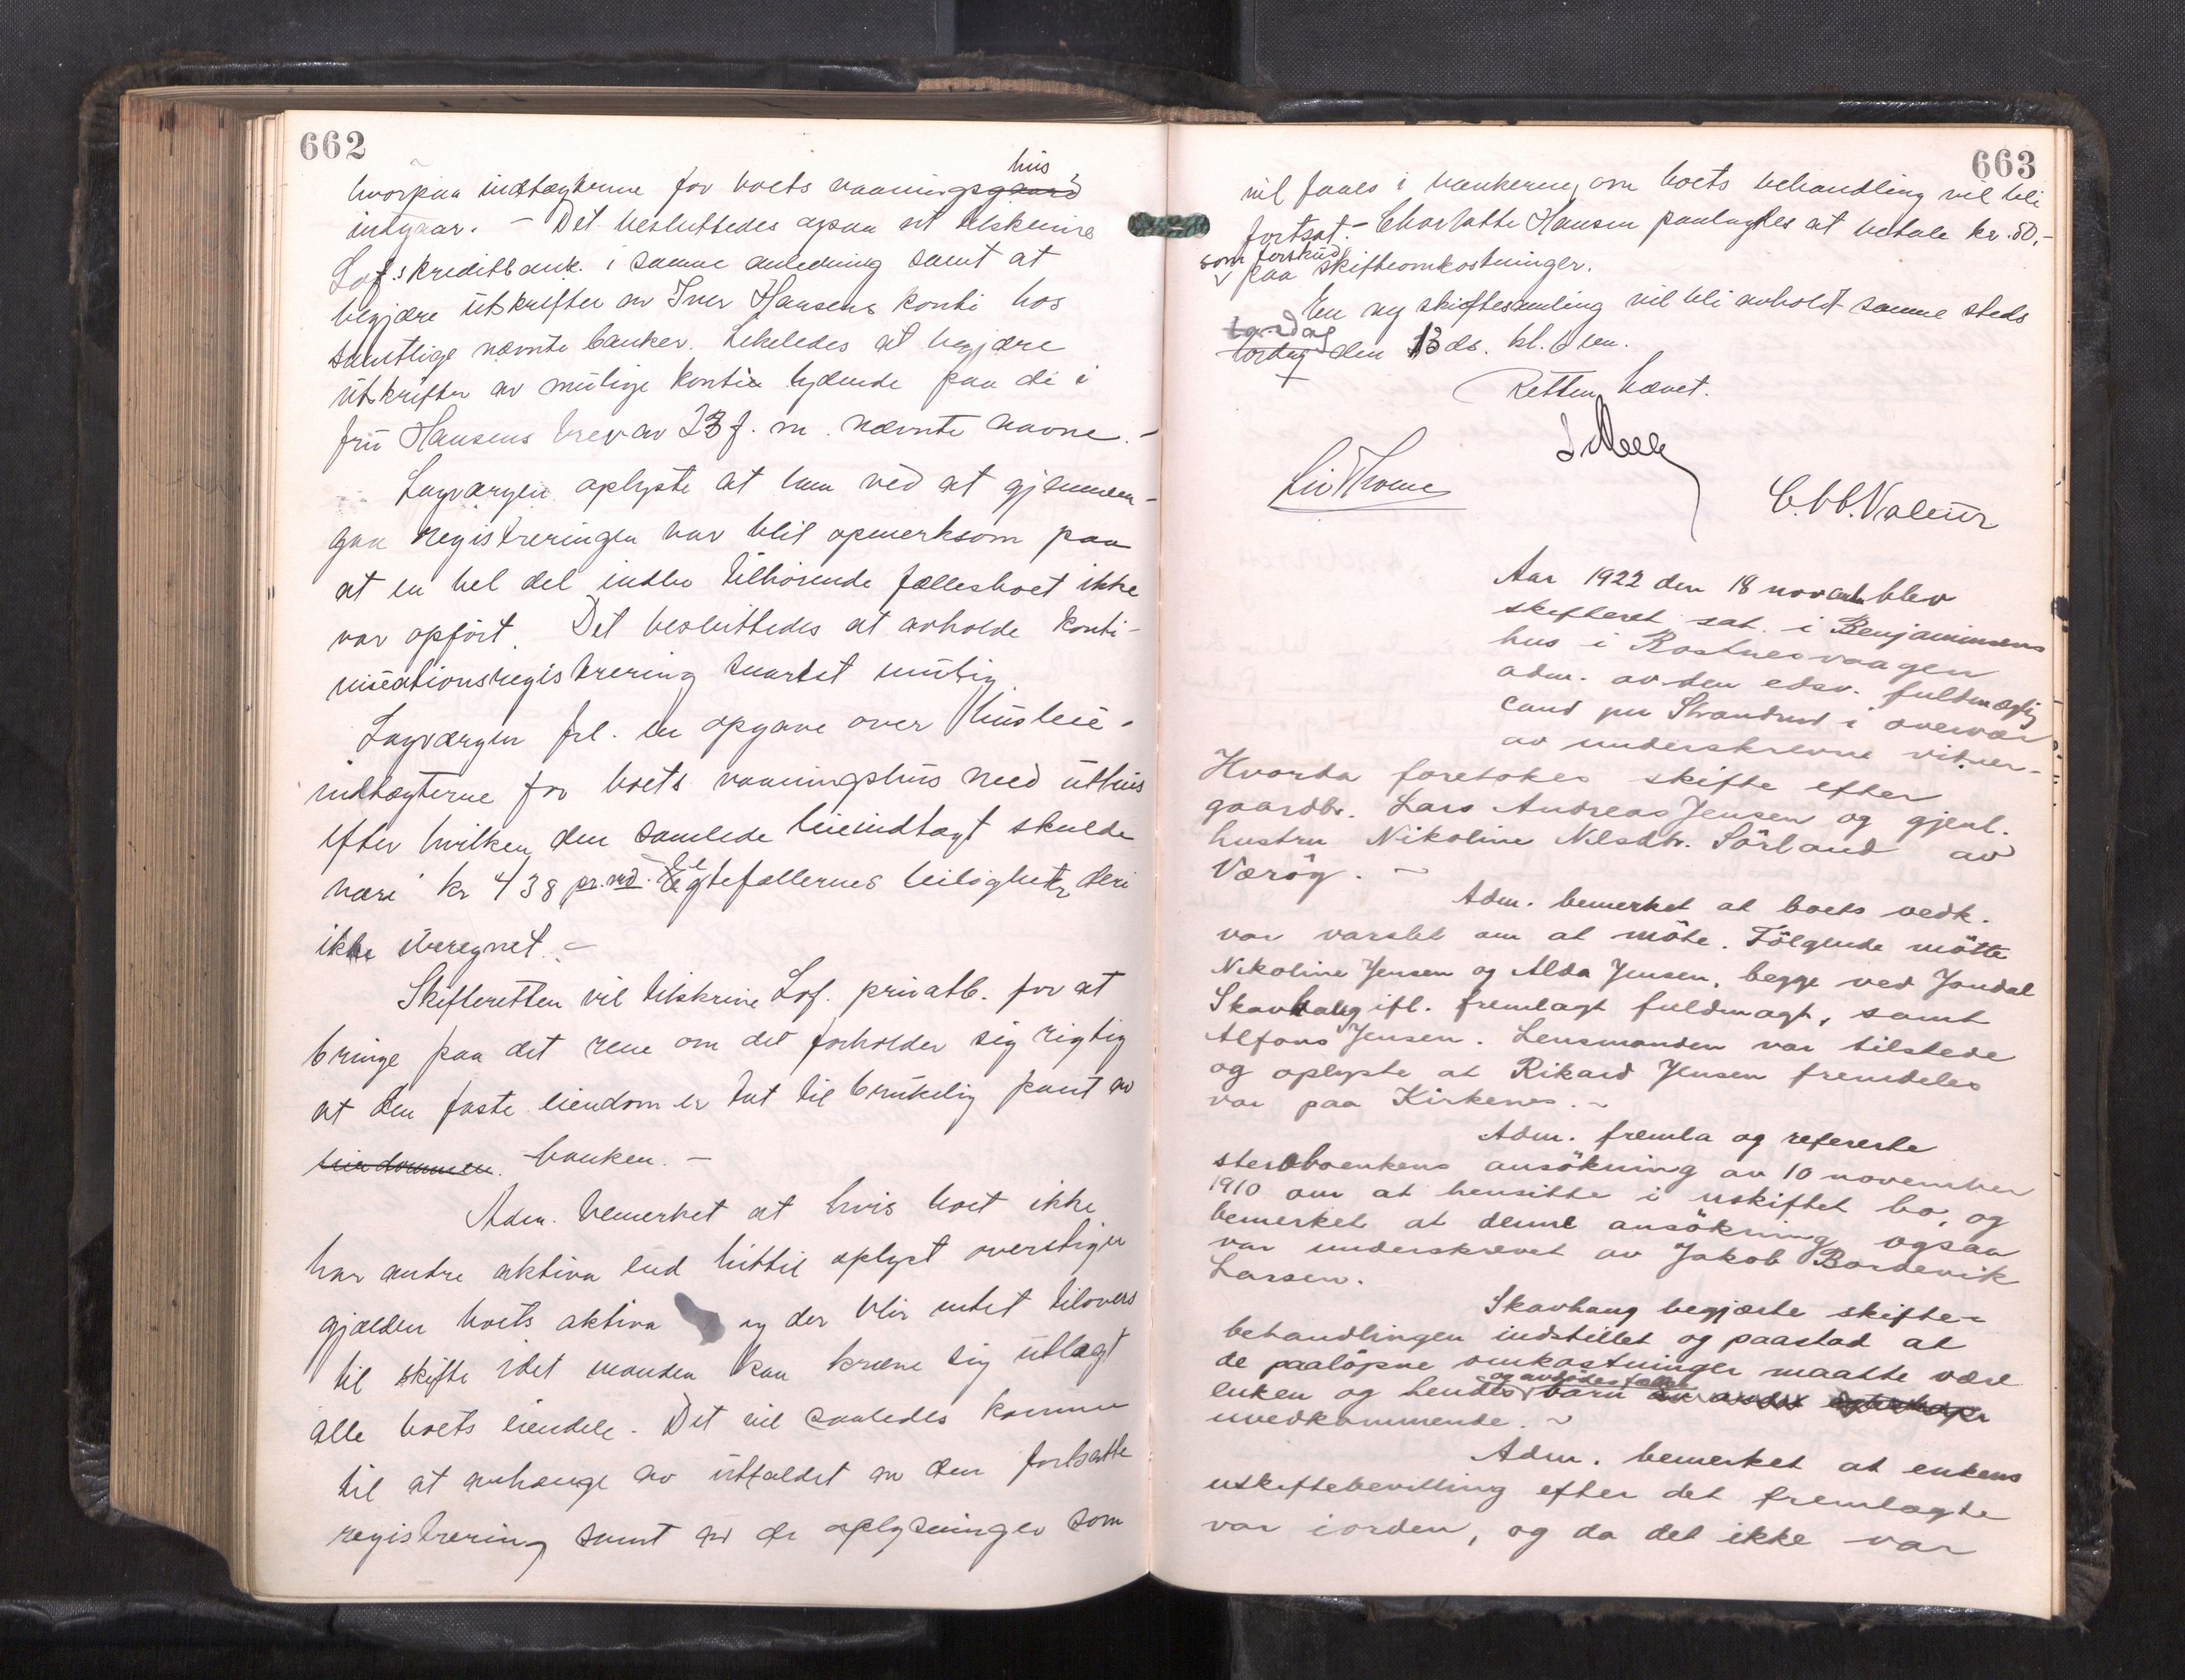 662
hvorpaa indtægterne for boets vaaningsgaard hus
indgaar. – Det besluttedes ogsaa at tilskrive
Lof. kreditbank i samme anledning samt at
begjære utskrifter av Iver Hansens konti hos
samtlige nævnte banker. Likeledes at begjære
utskrifter av mulige konti lydende paa de i
fru Hansens brev av 23 f. m. nævnte navne. –
Lagværgen oplyste at han ved at gjennem-
gaa registreringen var blit opmerksom paa
at en hel del indbo tilhørende fællesboet ikke
var opført. Det besluttedes at avholde konti-
nuationsregistrering snarest mulig.
Lagværgen frl. en opgave over husleie-
indtægterne for boets vaaningshus med uthus
efter hvilken den samlede leieindtægt skulde
være kr 438 pr. md. Egtefællernes leilighet deri
ikke iberegnet. –
Skifteretten vil tilskrive Lof. privatb. for at
bringe paa det rene om det forholder sig rigtig
at den faste eiendom er tat til brukelig pant av
eiendommen. banken. –
Adm. bemerket at hvis boet ikke
har andre aktiva end hittil oplyst overstiger
gjælden boets aktiva og der blir intet tilovers
til skifte idet manden kan kræve sig utlagt
alle boets eiendele. Det vil saaledes komme
til at avhænge av utfaldet av den fortsatte
registrering samt av de oplysninger som
663
vil faaes i bankerne, om boets behandling vil bli
fortsat. – Charlotte Hansen paalagdes at betale kr. 80,–
som forskud
paa skifteomkostninger.
En ny skiftesamling vil bli avholdt samme steds
lørdag den 13 ds. kl. 6 em.
Retten hævet.
C. Valeur
Aar 1922 den 18 novbr blev
skifteret sat i Benjaminsens
hus i Rostnesvaagen
adm. av den edsv. fuldmægtig
cand jur Strandrud i overvær
av underskrevne vitner –
Hvorda foretokes skifte efter
gaardbr. Lars Andreas Jensen og gjenl.
hustru Nikoline Nilsdtr. Sörland av
Væröy. –
Adm. bemerket at boets vedk.
var varslet om at möte. Fölgende mötte
Nikoline Jensen og Alda Jensen, begge ved Jondal
Skavhaug ifl. fremlagt fuldmagt, samt
Alfons Jensen. Lensmanden var tilstede
og oplyste at Rikard Jensen fremdeles
var paa Kirkenes. –
Adm. fremla og refererte
sterboenkens ansökning av 10 november
1910 om at hensitte i uskiftet bo, og
bemerket at denne ansökning ogsaa
var underskrevet av Jakob Bordevik
Larsen.
Skavhaug begjærte skifte-
behandlingen indstillet og paastod at
de paalöpne omkostninger maatte være
enken og hendes barn
uvedkommende. –
Adm. bemerket at enkens
uskiftebevilling efter det fremlagte
var iorden, og da det ikke var